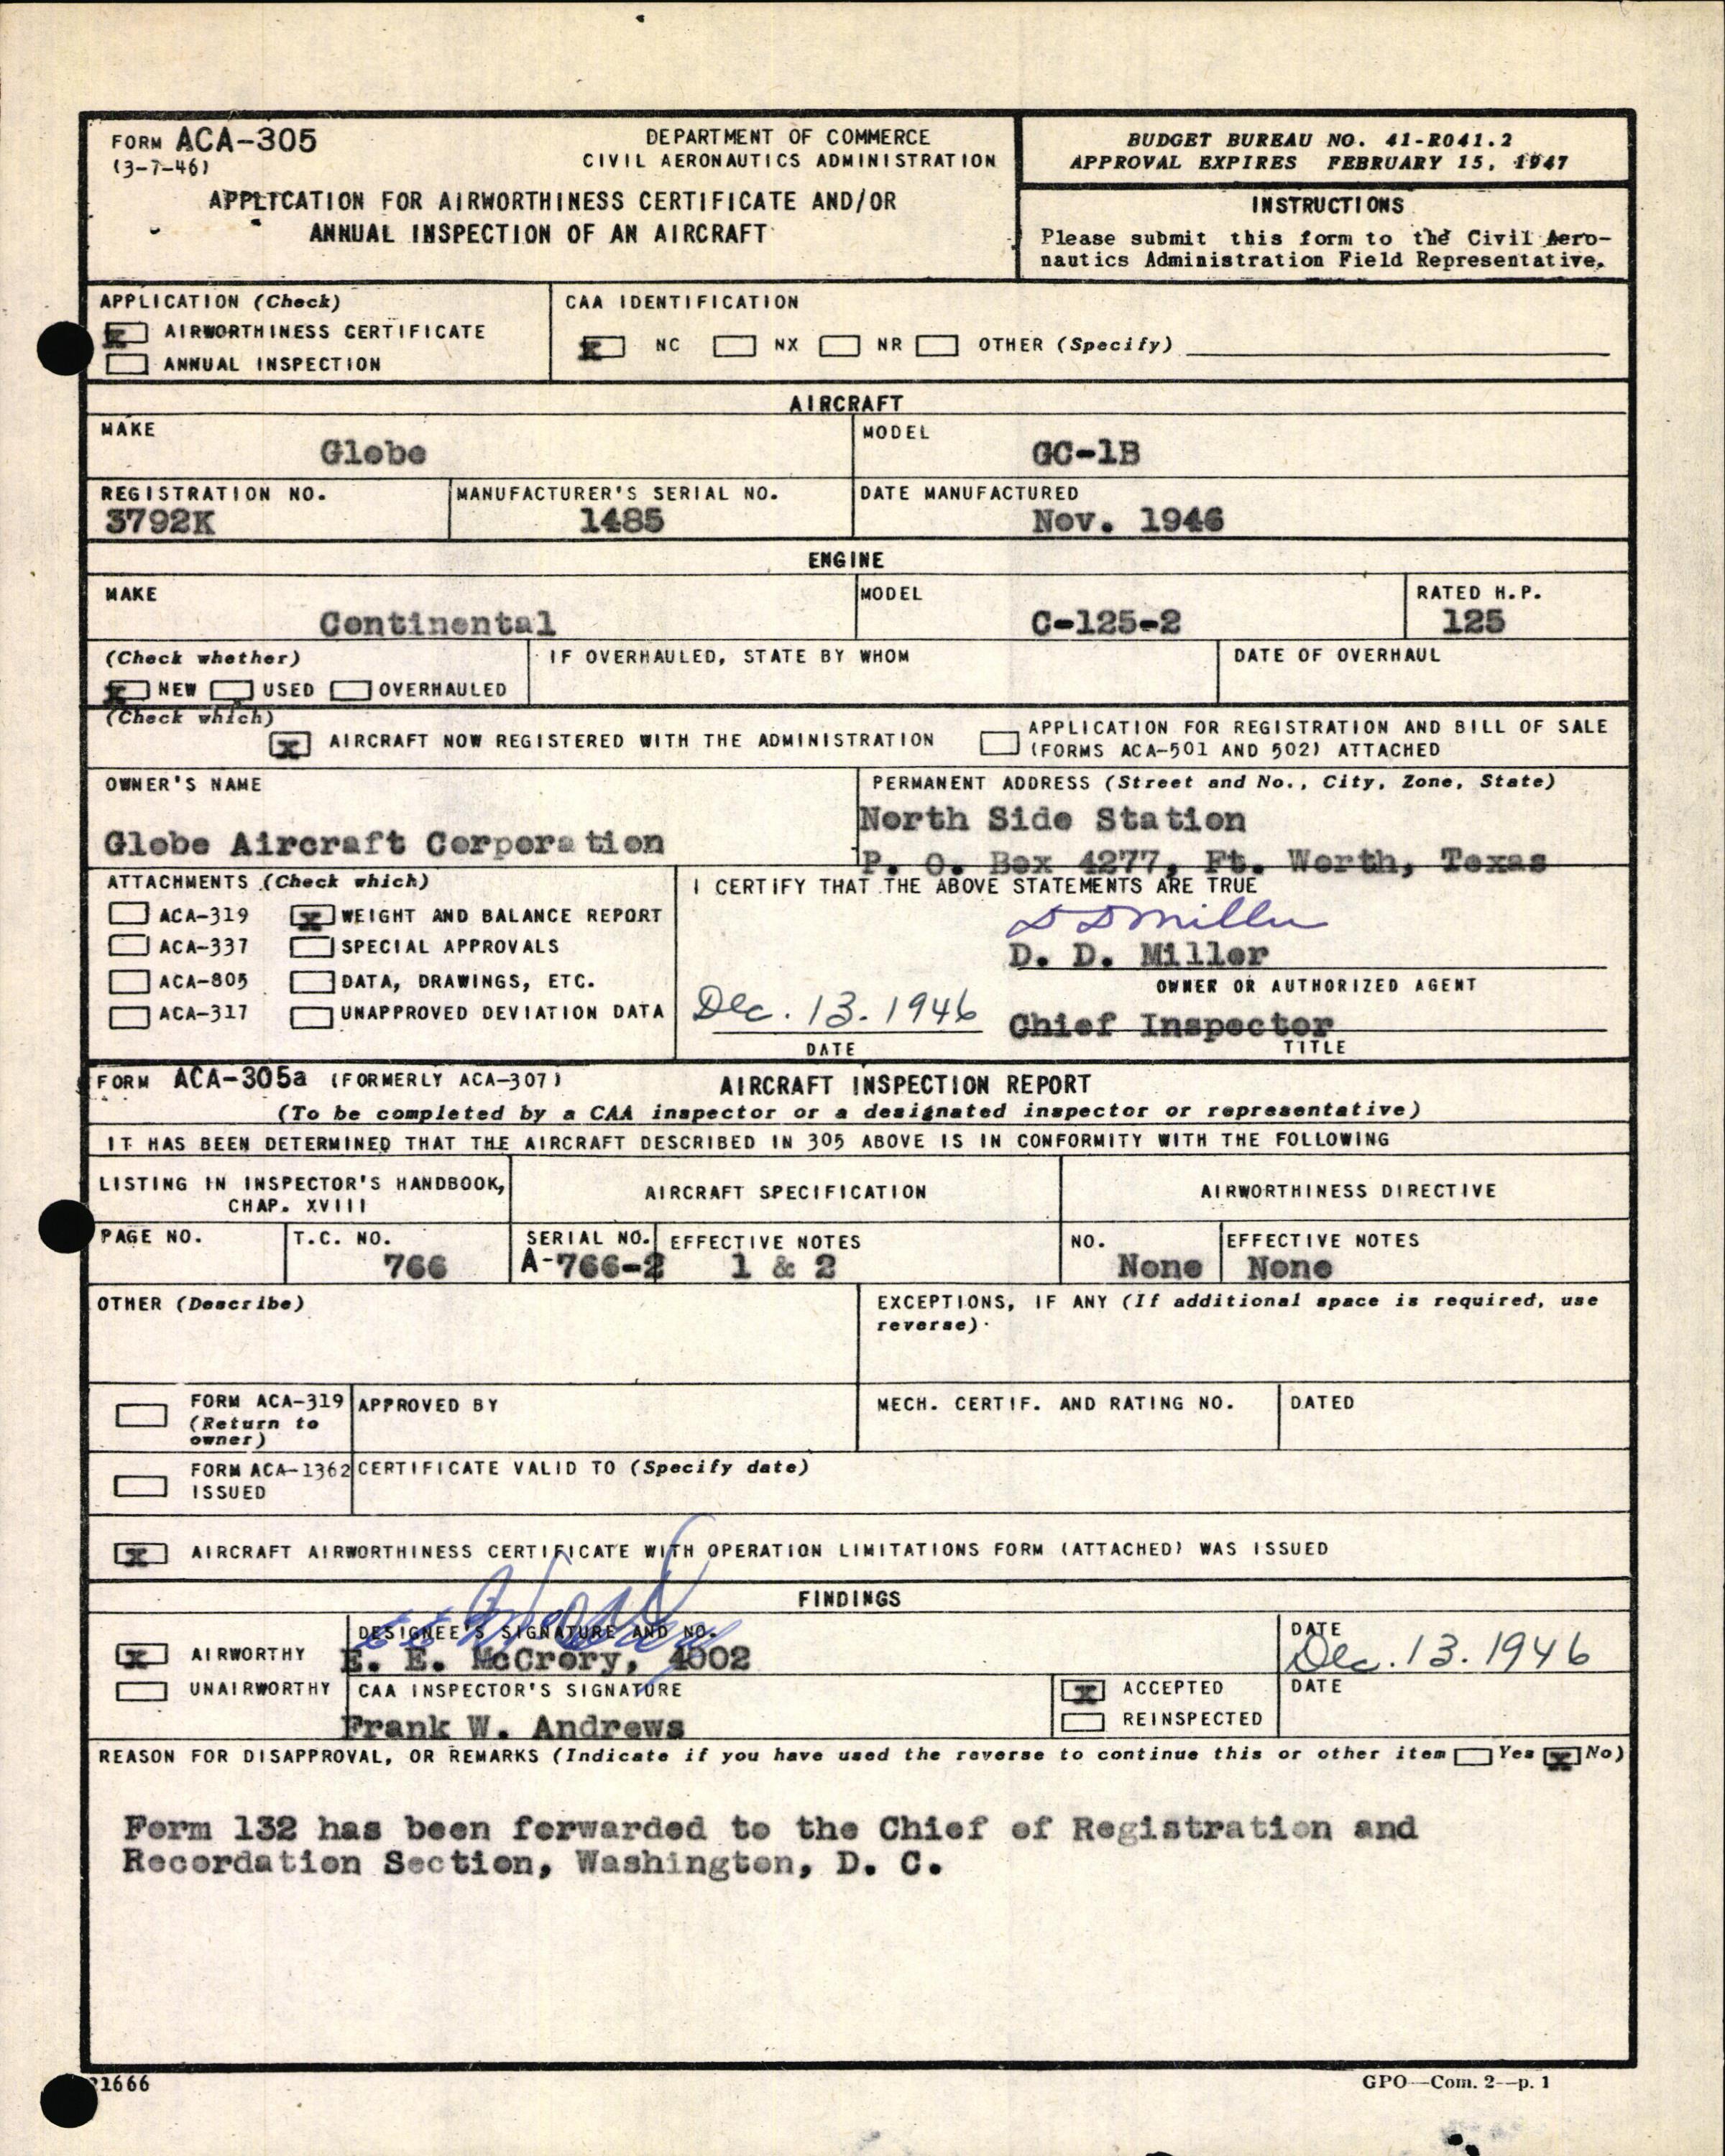 FORM ACA-305
(3-7-46)
DEPARTMENT OF COMMERCE
CIVIL AERONAUTICS ADMINISTRATION
APPLICATION FOR AIRWORTHINESS CERTIFICATE AND/OR
ANNUAL INSPECTION OF AN AIRCRAFT
BUDGET BUREAU NO. 41-R041.2
APPROVAL EXPIRES FEBRUARY 15, 1947
INSTRUCTIONS
Please submit this form to the Civil Aero-
nautics Administration Field Representative.
APPLICATION (Check)
x AIRWORTHINESS CERTIFICATE
ANNUAL INSPECTION
CAA IDENTIFICATION
x NC NX NR OTHER (Specify)
AIRCRAFT
MAKE
Globe
MODEL
GC-1B
REGISTRATION NO.
3792K
MANUFACTURER'S SERIAL NO.
1485
DATE MANUFACTURED
Nov. 1946
ENGINE
MAKE
Continental
MODEL
C-125-2
RATED H.P.
125
(Check whether)
x NEW USED OVERHAULED
IF OVERHAULED, STATE BY WHOM
DATE OF OVERHAUL
(Check which)
x AIRCRAFT NOW REGISTERED WITH THE ADMINISTRATION
APPLICATION FOR REGISTRATION AND BILL OF SALE
(FORMS ACA-501 AND 502) ATTACHED
OWNER'S NAME
Globe Aircraft Corporation
PERMANENT ADDRESS (Street and No., City, Zone, State)
North Side Station
P. O. Box 4277, Ft. Worth, Texas
ATTACHMENTS (Check which)
ACA-319 x WEIGHT AND BALANCE REPORT
ACA-337 SPECIAL APPROVALS
ACA-805 DATA, DRAWINGS, ETC.
ACA-317 UNAPPROVED DEVIATION DATA
I CERTIFY THAT THE ABOVE STATEMENTS ARE TRUE
D D Miller
D. D. Miller
OWNER OR AUTHORIZED AGENT
Dec. 13. 1946
DATE
Chief Inspector
TITLE
FORM ACA-305a (FORMERLY ACA-307) AIRCRAFT INSPECTION REPORT
(To be completed by a CAA inspector or a designated inspector or representative)
IT HAS BEEN DETERMINED THAT THE AIRCRAFT DESCRIBED IN 305 ABOVE IS IN CONFORMITY WITH THE FOLLOWING
LISTING IN INSPECTOR'S HANDBOOK,
CHAP. XVIII
AIRCRAFT SPECIFICATION
AIRWORTHINESS DIRECTIVE
PAGE NO.
T.C. NO.
766
SERIAL NO.
A-766-2
EFFECTIVE NOTES
1 & 2
NO.
None
EFFECTIVE NOTES
None
OTHER (Describe)
EXCEPTIONS, IF ANY (If additional space is required, use
reverse).
FORM ACA-319
(Return to
owner)
APPROVED BY
MECH. CERTIF. AND RATING NO.
DATED
FORM ACA-1362
ISSUED
CERTIFICATE VALID TO (Specify date)
x AIRCRAFT AIRWORTHINESS CERTIFICATE WITH OPERATION LIMITATIONS FORM (ATTACHED) WAS ISSUED
FINDINGS
x AIRWORTHY
UNAIRWORTHY
DESIGNEE'S SIGNATURE AND NO.
E E McCrory
E. E. McCrory, 4002
DATE
Dec. 13. 1946
CAA INSPECTOR'S SIGNATURE
Frank W. Andrews
x ACCEPTED
REINSPECTED
DATE
REASON FOR DISAPPROVAL, OR REMARKS (Indicate if you have used the reverse to continue this or other item Yes x No)
Form 132 has been forwarded to the Chief of Registration and
Recordation Section, Washington, D. C.
21666
GPO—Com. 2—p. 1